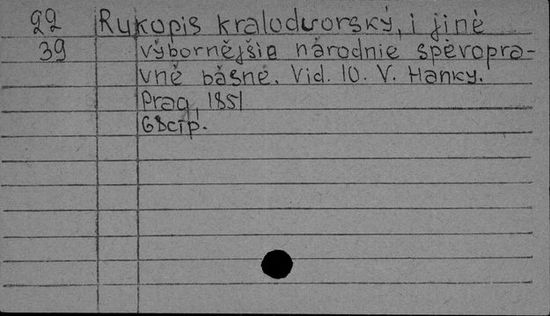 22 Rukopis kralodvorský, i jiné
39 výbornějšie národnie spěvopra-
vně básně. Vid. 10. V. Hanky.
Prag, 1851
68стр.